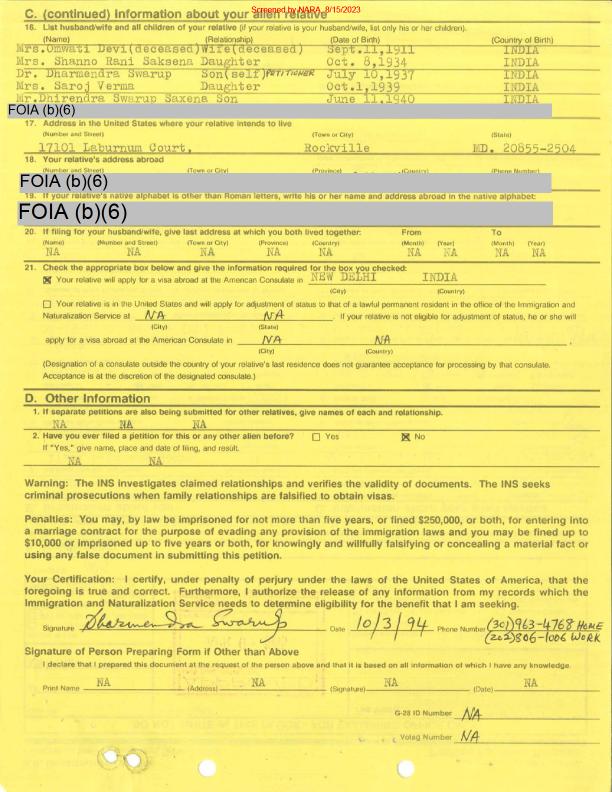 Screened by NARA, 8/15/2023
C. (continued) Information about your alien relative
16. List husband/wife and all children of your relative (if your relative is your husband/wife, list only his or her children).
(Name) (Relationship) (Date of Birth) (Country of Birth)
Mrs.Omwati Devi(deceased)Wife(deceased) Sept.11,1911 INDIA
Mrs. Shanno Rani Saksena Daughter Oct. 8,1934 INDIA
Dr. Dharmendra Swarup Son(self)PETITIONER July 10,1937 INDIA
Mrs. Saroj Verma Daughter Oct.1,1939 INDIA
Mr.Dhirendra Swarup Saxena Son June 11,1940 INDIA
FOIA (b)(6)
17. Address in the United States where your relative intends to live
(Number and Street) (Town or City) (State)
17101 Laburnum Court, Rockville MD. 20855-2504
18. Your relative's address abroad
(Number and Street) (Town or City) (Province) (Country) (Phone Number)
FOIA (b)(6)
19. If your relative's native alphabet is other than Roman letters, write his or her name and address abroad in the native alphabet:
FOIA (b)(6)
20. If filing for your husband/wife, give last address at which you both lived together: From To
(Name) (Number and Street) (Town or City) (Province) (Country) (Month) (Year) (Month) (Year)
NA NA NA NA NA NA NA NA NA
21. Check the appropriate box below and give the information required for the box you checked:
Your relative will apply for a visa abroad at the American Consulate in NEW DELHI INDIA
(City) (Country)
Your relative is in the United States and will apply for adjustment of status to that of a lawful permanent resident in the office of the Immigration and
Naturalization Service at NA NA. If your relative is not eligible for adjustment of status, he or she will
(City) (State)
apply for a visa abroad at the American Consulate in NA NA.
(City) (Country)
(Designation of a consulate outside the country of your relative's last residence does not guarantee acceptance for processing by that consulate.
Acceptance is at the discretion of the designated consulate.)
D. Other Information
1. If separate petitions are also being submitted for other relatives, give names of each and relationship.
NA NA NA
2. Have you ever filed a petition for this or any other alien before? Yes No
If "Yes," give name, place and date of filing, and result.
NA NA
Warning: The INS investigates claimed relationships and verifies the validity of documents. The INS seeks
criminal prosecutions when family relationships are falsified to obtain visas.
Penalties: You may, by law be imprisoned for not more than five years, or fined $250,000, or both, for entering into
a marriage contract for the purpose of evading any provision of the immigration laws and you may be fined up to
$10,000 or imprisoned up to five years or both, for knowingly and willfully falsifying or concealing a material fact or
using any false document in submitting this petition.
Your Certification: I certify, under penalty of perjury under the laws of the United States of America, that the
foregoing is true and correct. Furthermore, I authorize the release of any information from my records which the
Immigration and Naturalization Service needs to determine eligibility for the benefit that I am seeking.
Signature Dharmendra Swarup Date 10/3/94 Phone Number (301)963-4768 HOME
(202)806-1006 WORK
Signature of Person Preparing Form if Other than Above
I declare that I prepared this document at the request of the person above and that it is based on all information of which I have any knowledge.
Print Name NA (Address) NA (Signature) NA (Date) NA
G-28 ID Number NA
Volag Number NA